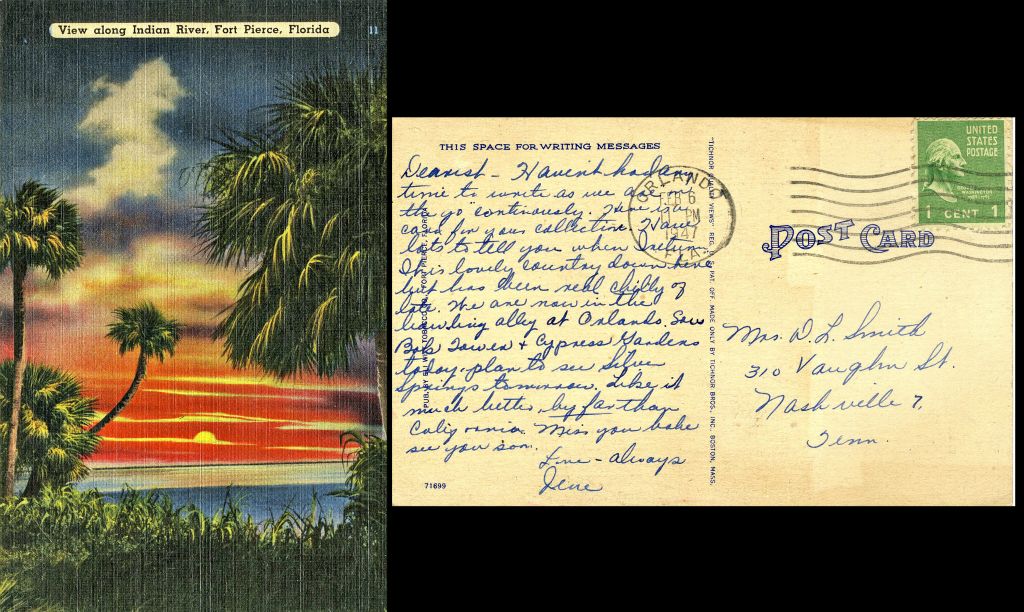 View along Indian River, Fort Pierce, Florida
11
THIS SPACE FOR WRITING MESSAGES
Dearest - Havent had any
time to write as we are on
the "go" continously. Here is a
card for your collection. Have
lots to tell you when I return.
This lovely country down here
but has been real chilly of
late. We are now in the
bowling alley at Orlando. Saw
Bok Tower & Cypress Gardens
today, plan to see Silver
Springs tomorrow. Like it
much better by far than
California. Miss you babe
see you soon.
Love - always
71699
ORLANDO
FEB 6
PM
1947
FLA.
"TICHNOR QUALITY VIEWS" REG. U. S. PAT. OFF. MADE ONLY BY TICHNOR BROS., INC., BOSTON, MASS.
UNITED
STATES
POSTAGE
1 CENT 1
POST CARD
Mrs. D. L. Smith
310 Vaughn St.
Nashville 7,
Tenn.